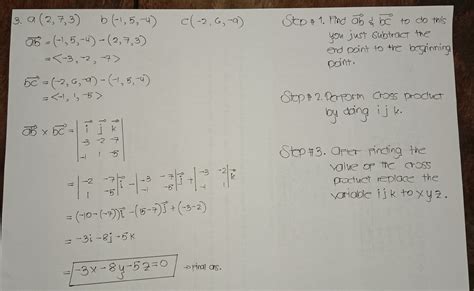 3. a (2,7,3)   b (-1,5,-4)   c (-2,6,-9)
ab = (-1,5,-4) - (2,7,3)
= <-3, -2, -7>
bc = (-2,6,-9) - (-1,5,-4)
= <-1, 1, -5>
ab × bc = | i j k |
-3 -2 -7
-1 1 -5
= | -2 -7 | i - | -3 -7 | j + | -3 -2 | k
1 -5   -1 -5   -1 1
= (-10-(-7)) i - (15-7) j + (-3-2)
= -3i - 8j - 5k
= -3x - 8y - 5z = 0 → final ans.
Step # 1. Find ab & bc to do this
you just subtract the
end point to the beginning
point.
Step # 2. Perform cross product
by doing i j k.
Step # 3. After finding the
value of the cross
product replace the
variable i j k to x y z.